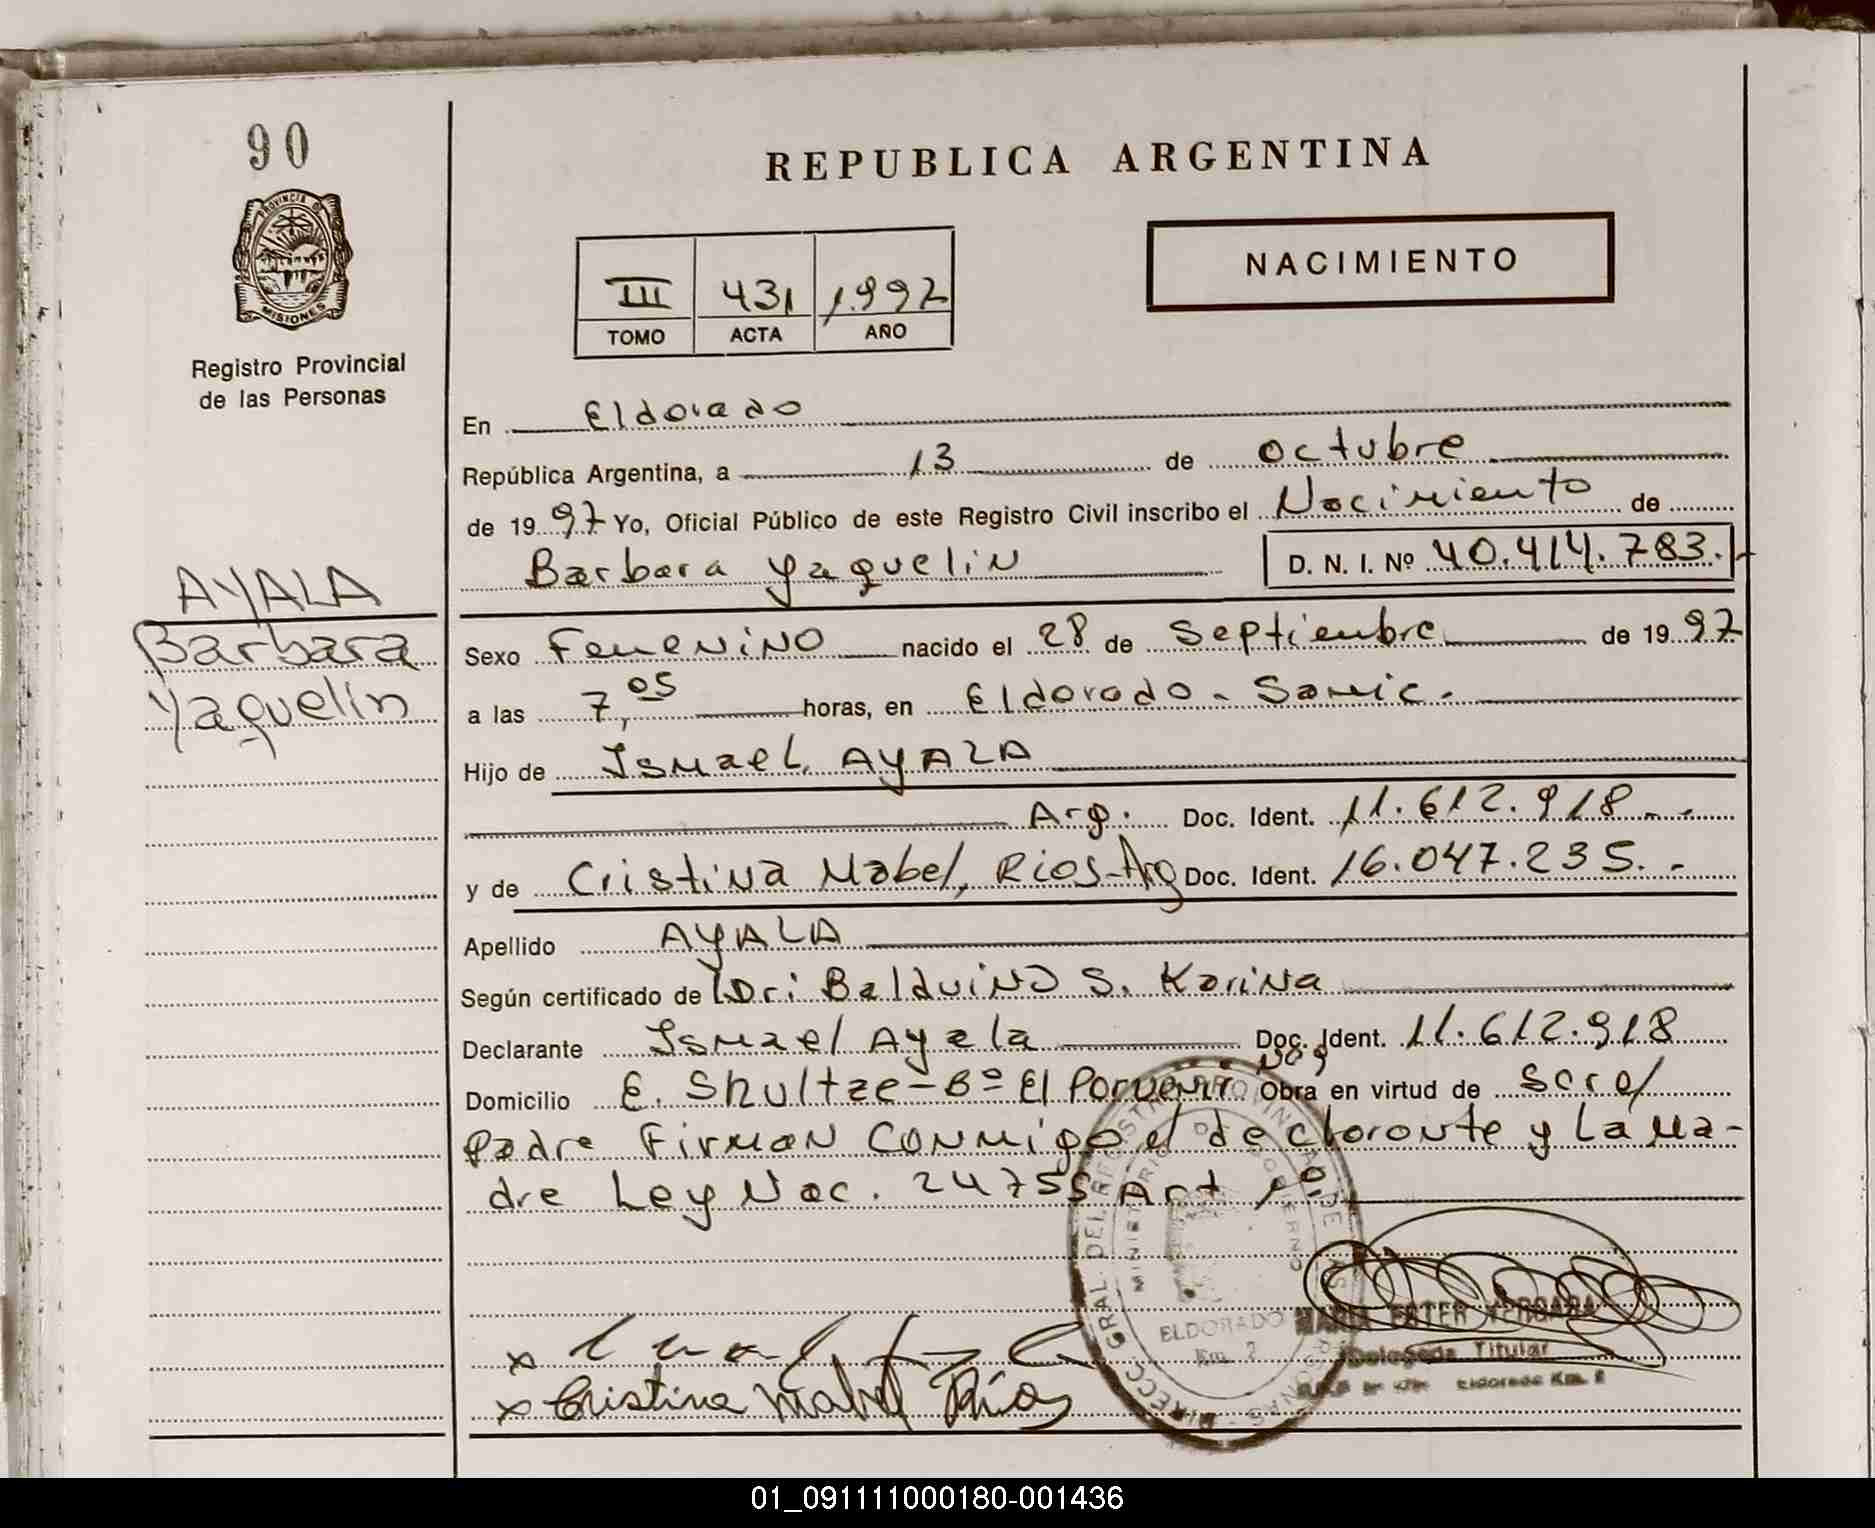 90
PROVINCIA DE
MISIONES
Registro Provincial
de las Personas
AYALA
Barbara
Yaquelin
REPUBLICA ARGENTINA
NACIMIENTO
III 431 1.997
TOMO ACTA AÑO
En Eldorado
República Argentina, a 13 de octubre
de 1997 Yo, Oficial Público de este Registro Civil inscribo el Nacimiento de
Barbara Yaquelin D. N. I. Nº 40.414.783.-
Sexo Femenino nacido el 28 de Septiembre de 1997
a las 7,05 horas, en Eldorado - Samic.
Hijo de Ismael, AYALA
Arg. Doc. Ident. 11.612.918
y de Cristina Mabel, Rios-Arg Doc. Ident. 16.047.235.-
Apellido AYALA
Según certificado de Dr: Balduino S. Karina
Declarante Ismael Ayala Doc. Ident. 11.612.918
Domicilio E. Shultze - Bº El Porvenir Nº 9 Obra en virtud de Ser el
Padre Firman conmigo el declarante y La Ma-
dre Ley Nac. 24755 Art 1º
DIRECC. GRAL. DEL REGISTRO PROVINCIAL DE LAS
MINISTERIO DE GOBIERNO
ELDORADO
Km.
MARIA ESTER VERGARA
Delegada Titular
Eldorado Km.
x
x Cristina Mabel Ríos
01_091111000180-001436